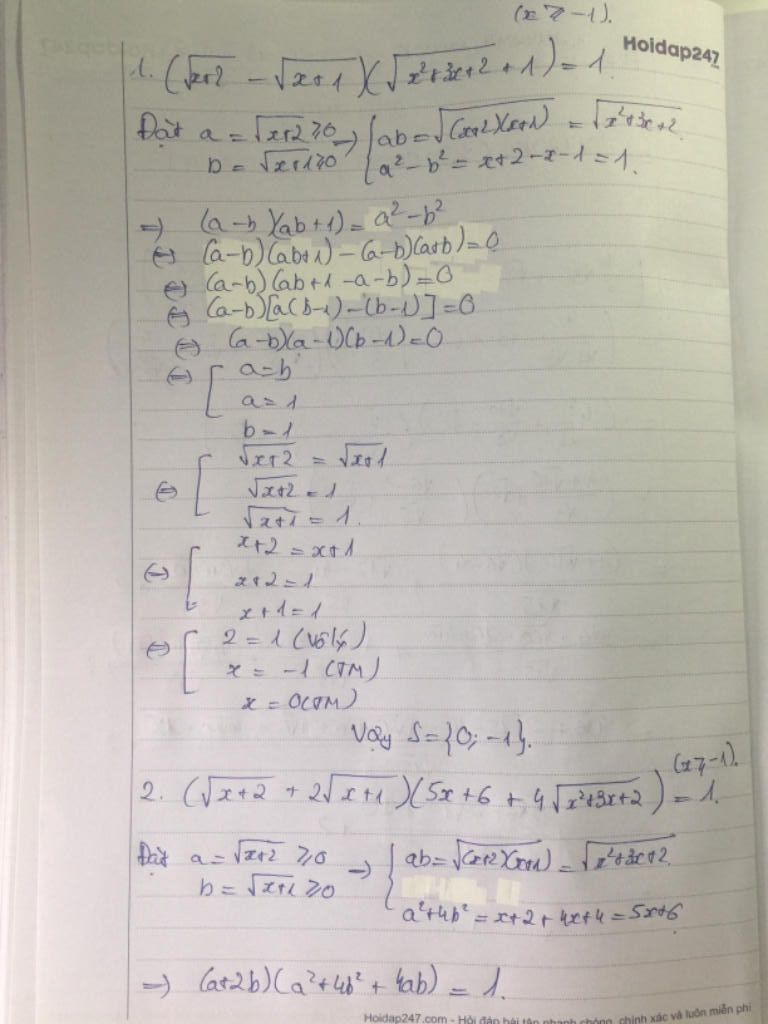 (x ⩾ -1).
Hoidap247
1. (√(x+2) - √(x+1))(√(x²+3x+2) + 1) = 1
Đặt a = √(x+2) ⩾ 0 → { ab = √((x+2)(x+1)) = √(x²+3x+2)
b = √(x+1) ⩾ 0 a² - b² = x+2-x-1 = 1.
⇒ (a-b)(ab+1) = a² - b²
⇔ (a-b)(ab+1) - (a-b)(a+b) = 0
⇔ (a-b)(ab+1-a-b) = 0
⇔ (a-b)[a(b-1)-(b-1)] = 0
⇔ (a-b)(a-1)(b-1) = 0
⇔ [ a = b
a = 1
b = 1
⇔ [ √(x+2) = √(x+1)
√(x+2) = 1
√(x+1) = 1.
⇔ [ x+2 = x+1
x+2 = 1
x+1 = 1
⇔ [ 2 = 1 (Vôlý)
x = -1 (TM)
x = 0 (TM)
Vậy S = {0; -1}.
(x ⩾ -1).
2. (√(x+2) + 2√(x+1))(5x+6 + 4√(x²+3x+2)) = 1.
Đặt a = √(x+2) ⩾ 0 → { ab = √((x+2)(x+1)) = √(x²+3x+2)
b = √(x+1) ⩾ 0
a²+4b² = x+2+4x+4 = 5x+6
⇒ (a+2b)(a²+4b²+4ab) = 1.
Hoidap247.com - Hỏi đáp bài tập nhanh chóng, chính xác và luôn miễn phí